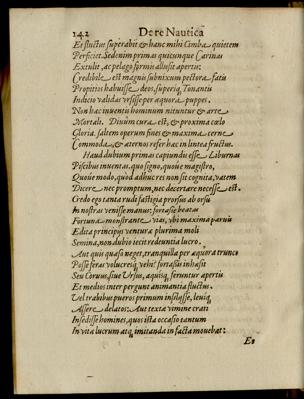 142 De re Nautica
Et fluctus superabit & hanc mihi Cimba quietem
Perficiet. Sed enim primas quicunque Carinas
Extulit, ac pelago formis allusit apertis:
Credibile est magnis subnixum pectora fatis
Propitios habuisse deos, superiq, Tonantis
Indicio validas versisse per aequora puppes.
Non hac inventis hominum nituntur & arte
Mortali. Divum cura est, & proxima caelo
Gloria. saltem operum fines & maxima cerne
Commoda, & aternos refer hac in lintea fructus.
Haud dubium primas capiundis esse Liburnas
Piscibus inventas, quo signo, quove magistro,
Quove modo, quod adhuc res non sit cognita, vatem
Dicere nec promptum, nec decertare necesse est.
Credo ego tanta rudi fastigia prorsus ab orsu
In nostras venisse manus: forasse beatas
Fortuna monstrante vias, vbi maxima parvis
Edita principiis ventura plurima moli
Semina, non dubio iecit redeuntia lucro.
Aut quis quaso neget, tranquilla per aequora trunco
Posse feras volucresq vehi? fortassis inhasit
Seu Corvus, sive Vrsus, aquisq, feruntur apertis
Et medios inter pergunt animantia fluctus.
Vel trabibus pueros primum insilasse, levíq
Assere delatos: Aut texta vimine crati
Insedisse homines, quos ista occasio tantum
In vita lucrum atq, imitanda in facta movebat:
Et